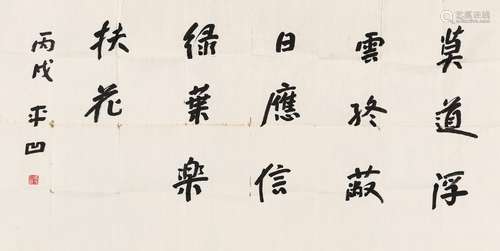 莫道浮
雲終蔽
日應信
緑葉樂
扶花
丙戌 平凹